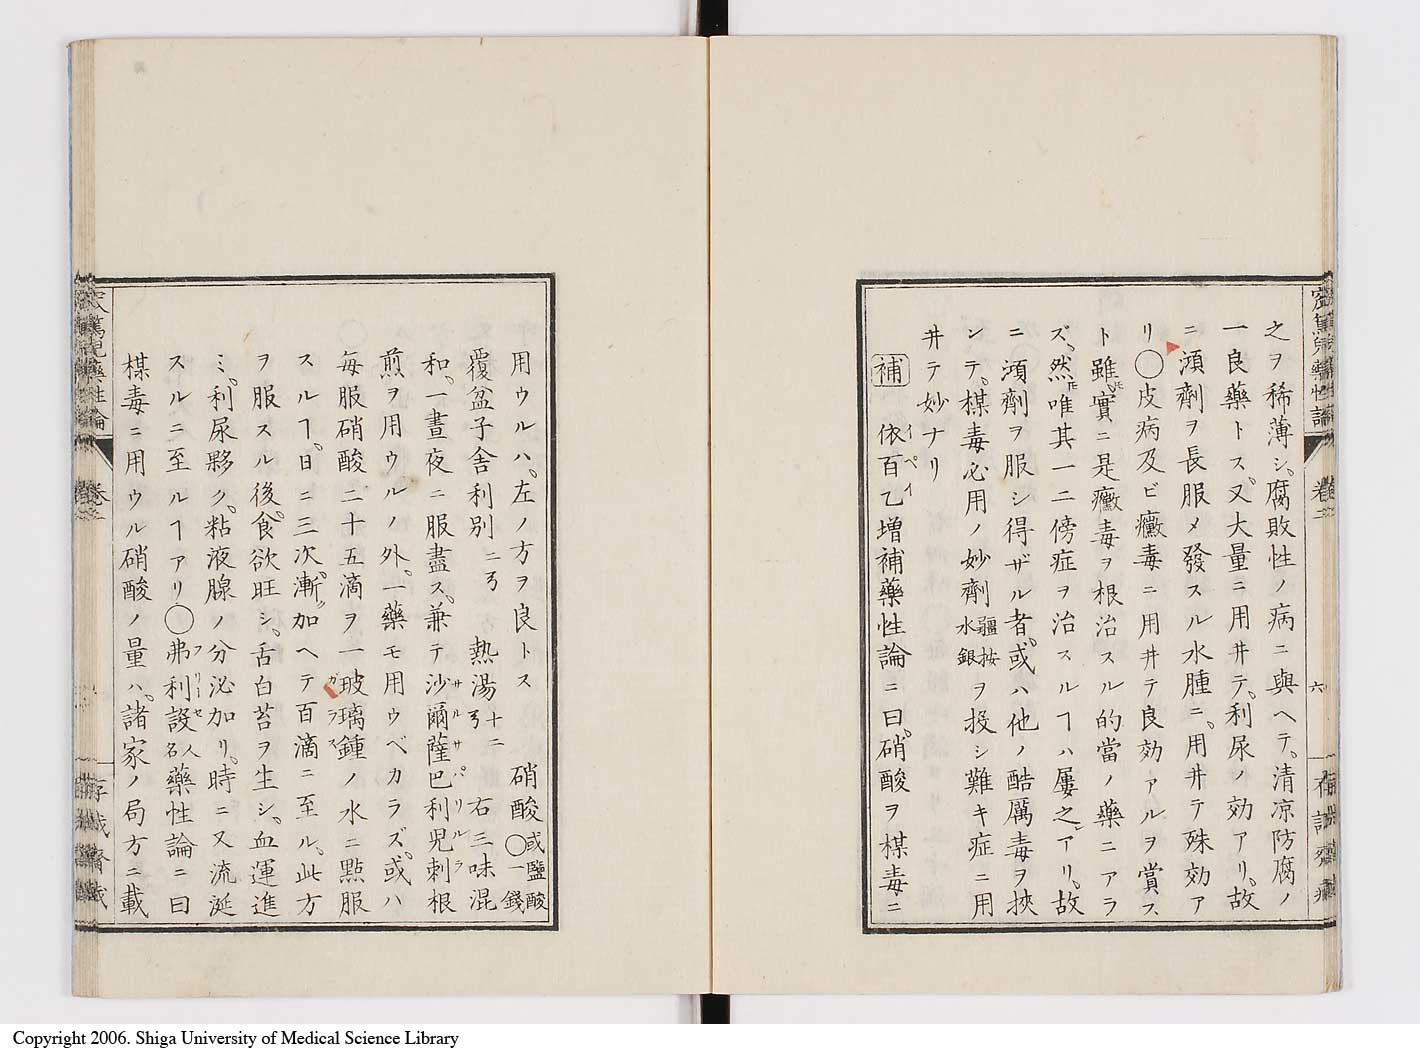 之ヲ稀薄シ。腐敗性ノ病ニ與ヘテ。清凉防腐ノ
一良藥トス。又大量ニ用井テ。利尿ノ効アリ。故
ニ須劑ヲ長服メ發スル水腫ニ。用井テ殊効ア
リ〇皮病及ビ黴毒ニ用井テ良効アルヲ賞ス
ト雖モ實ニ是黴毒ヲ根治スル的當ノ藥ニアラ
ズ。然𪜈唯其一二傍症ヲ治スルヿハ屢之レアリ。故
ニ澒劑ヲ服シ得ザル者。或ハ他ノ酷厲毒ヲ挾
ンテ。楳毒必用ノ妙劑水銀䪼按ヲ投シ難キ症ニ用
井テ妙ナリ
補 依百乙増補藥性論ニ曰。硝酸ヲ楳毒ニ
イペイ
六
用ウルハ。左ノ方ヲ良トス
硝酸或鹽酸〇一錢
覆盆子舎利別二ヲ 熱湯十二ヲ 右三味混
和。一晝夜ニ服盡ス。兼テ沙爾薩巴利児刺根
サルサパリルラ
煎ヲ用ウルノ外。一藥モ用ウベカラズ。或ハ
毎服硝酸二十五滴ヲ一玻璃鍾ノ水ニ㸃服
ガラス
スルヿ。日ニ三次。漸ク加ヘテ百滴ニ至ル。此方
ヲ服スル後。食欲旺シ。舌白苔ヲ生シ。血運進
ミ。利尿夥ク。粘液腺ノ分泌加リ。時ニ又流涎
スルニ至ルヿアリ〇弗利設人名藥性論ニ曰
フリーセ
楳毒ニ用ウル硝酸ノ量ハ。諸家ノ局方ニ載
卷二